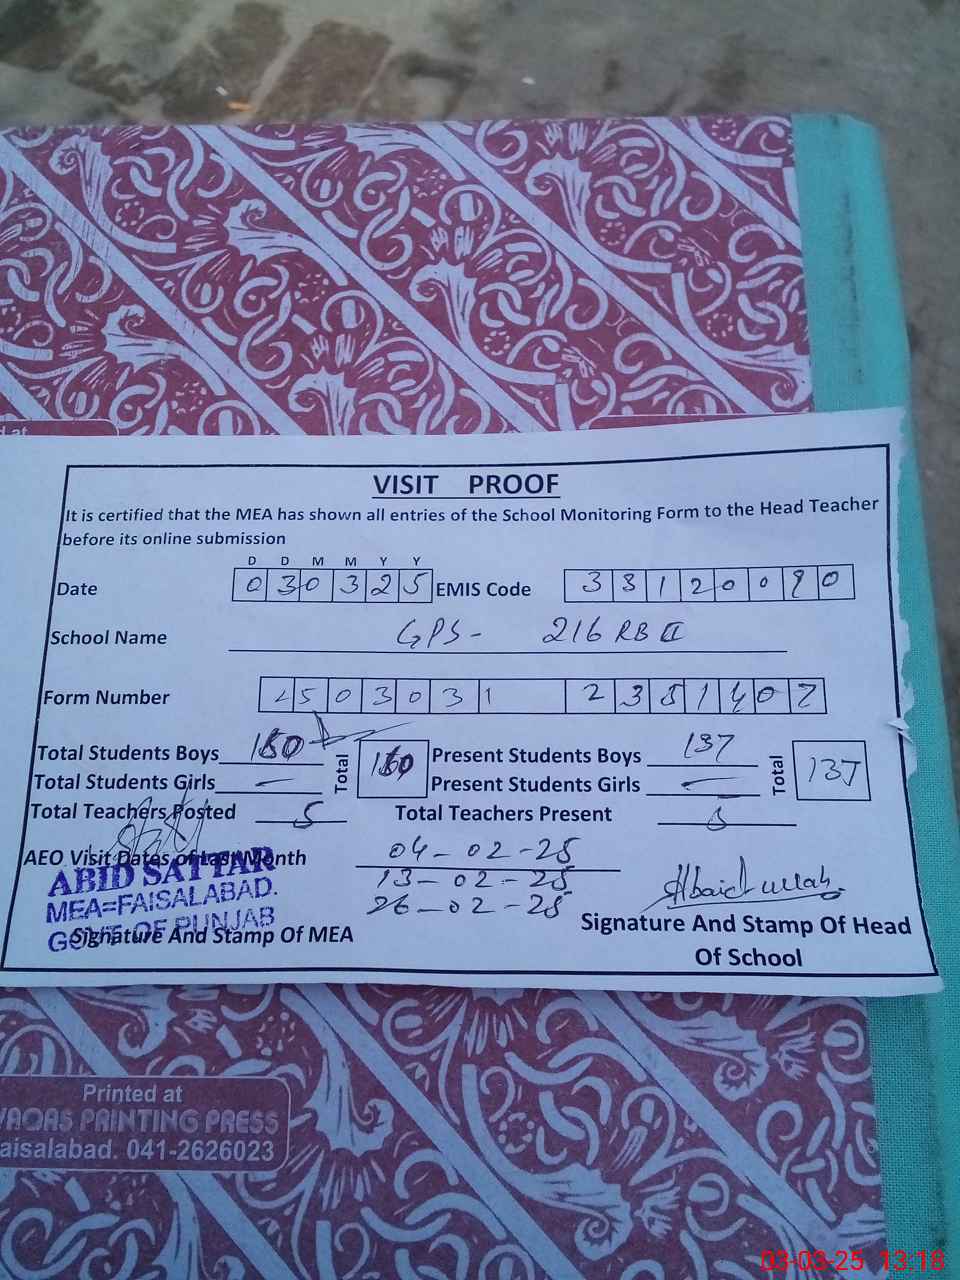 d at
VISIT PROOF
It is certified that the MEA has shown all entries of the School Monitoring Form to the Head Teacher
before its online submission
D D M M Y Y
Date 030325 EMIS Code 33120090
School Name GPS- 216 RB II
Form Number 2503031 2351407
Total Students Boys 160 Total 160 Present Students Boys 137 Total 137
Total Students Girls — Present Students Girls —
Total Teachers Posted 5 Total Teachers Present 5
AEO Visit Dates of Last Month 04-02-25
13-02-25
26-02-25
ABID SATTAR
MEA=FAISALABAD.
GOVT. OF PUNJAB
Signature And Stamp Of MEA
Signature And Stamp Of Head
Of School
Printed at
WAQAS PRINTING PRESS
aisalabad. 041-2626023
03-03-25 13:18